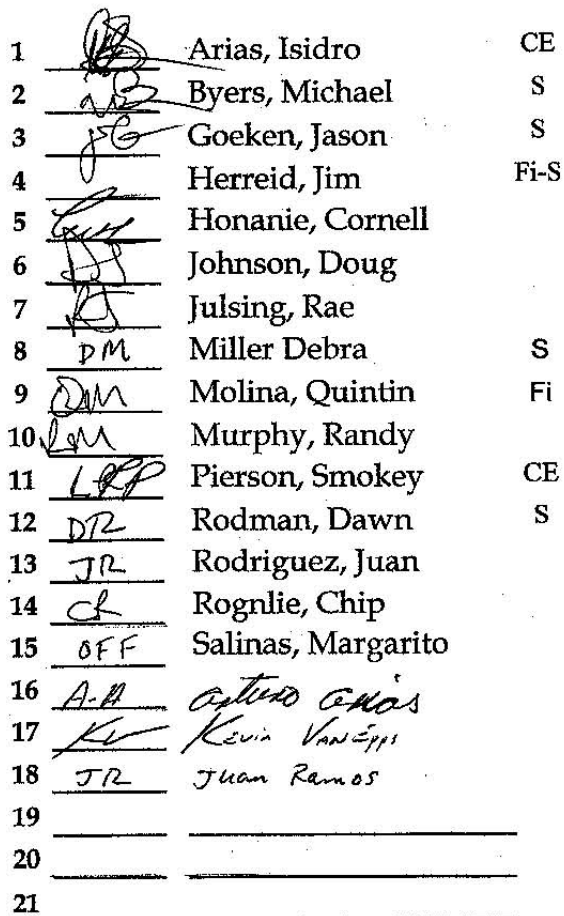 1 Arias, Isidro CE
2 Byers, Michael S
3 JG Goeken, Jason S
4 Herreid, Jim Fi-S
5 Honanie, Cornell
6 DJ Johnson, Doug
7 RJ Julsing, Rae
8 DM Miller Debra S
9 QM Molina, Quintin Fi
10 RM Murphy, Randy
11 LRP Pierson, Smokey CE
12 DR Rodman, Dawn S
13 JR Rodriguez, Juan
14 CR Rognlie, Chip
15 OFF Salinas, Margarito
16 A-A Arturo Arias
17 KV Kevin VanEpps
18 JR Juan Ramos
19
20
21